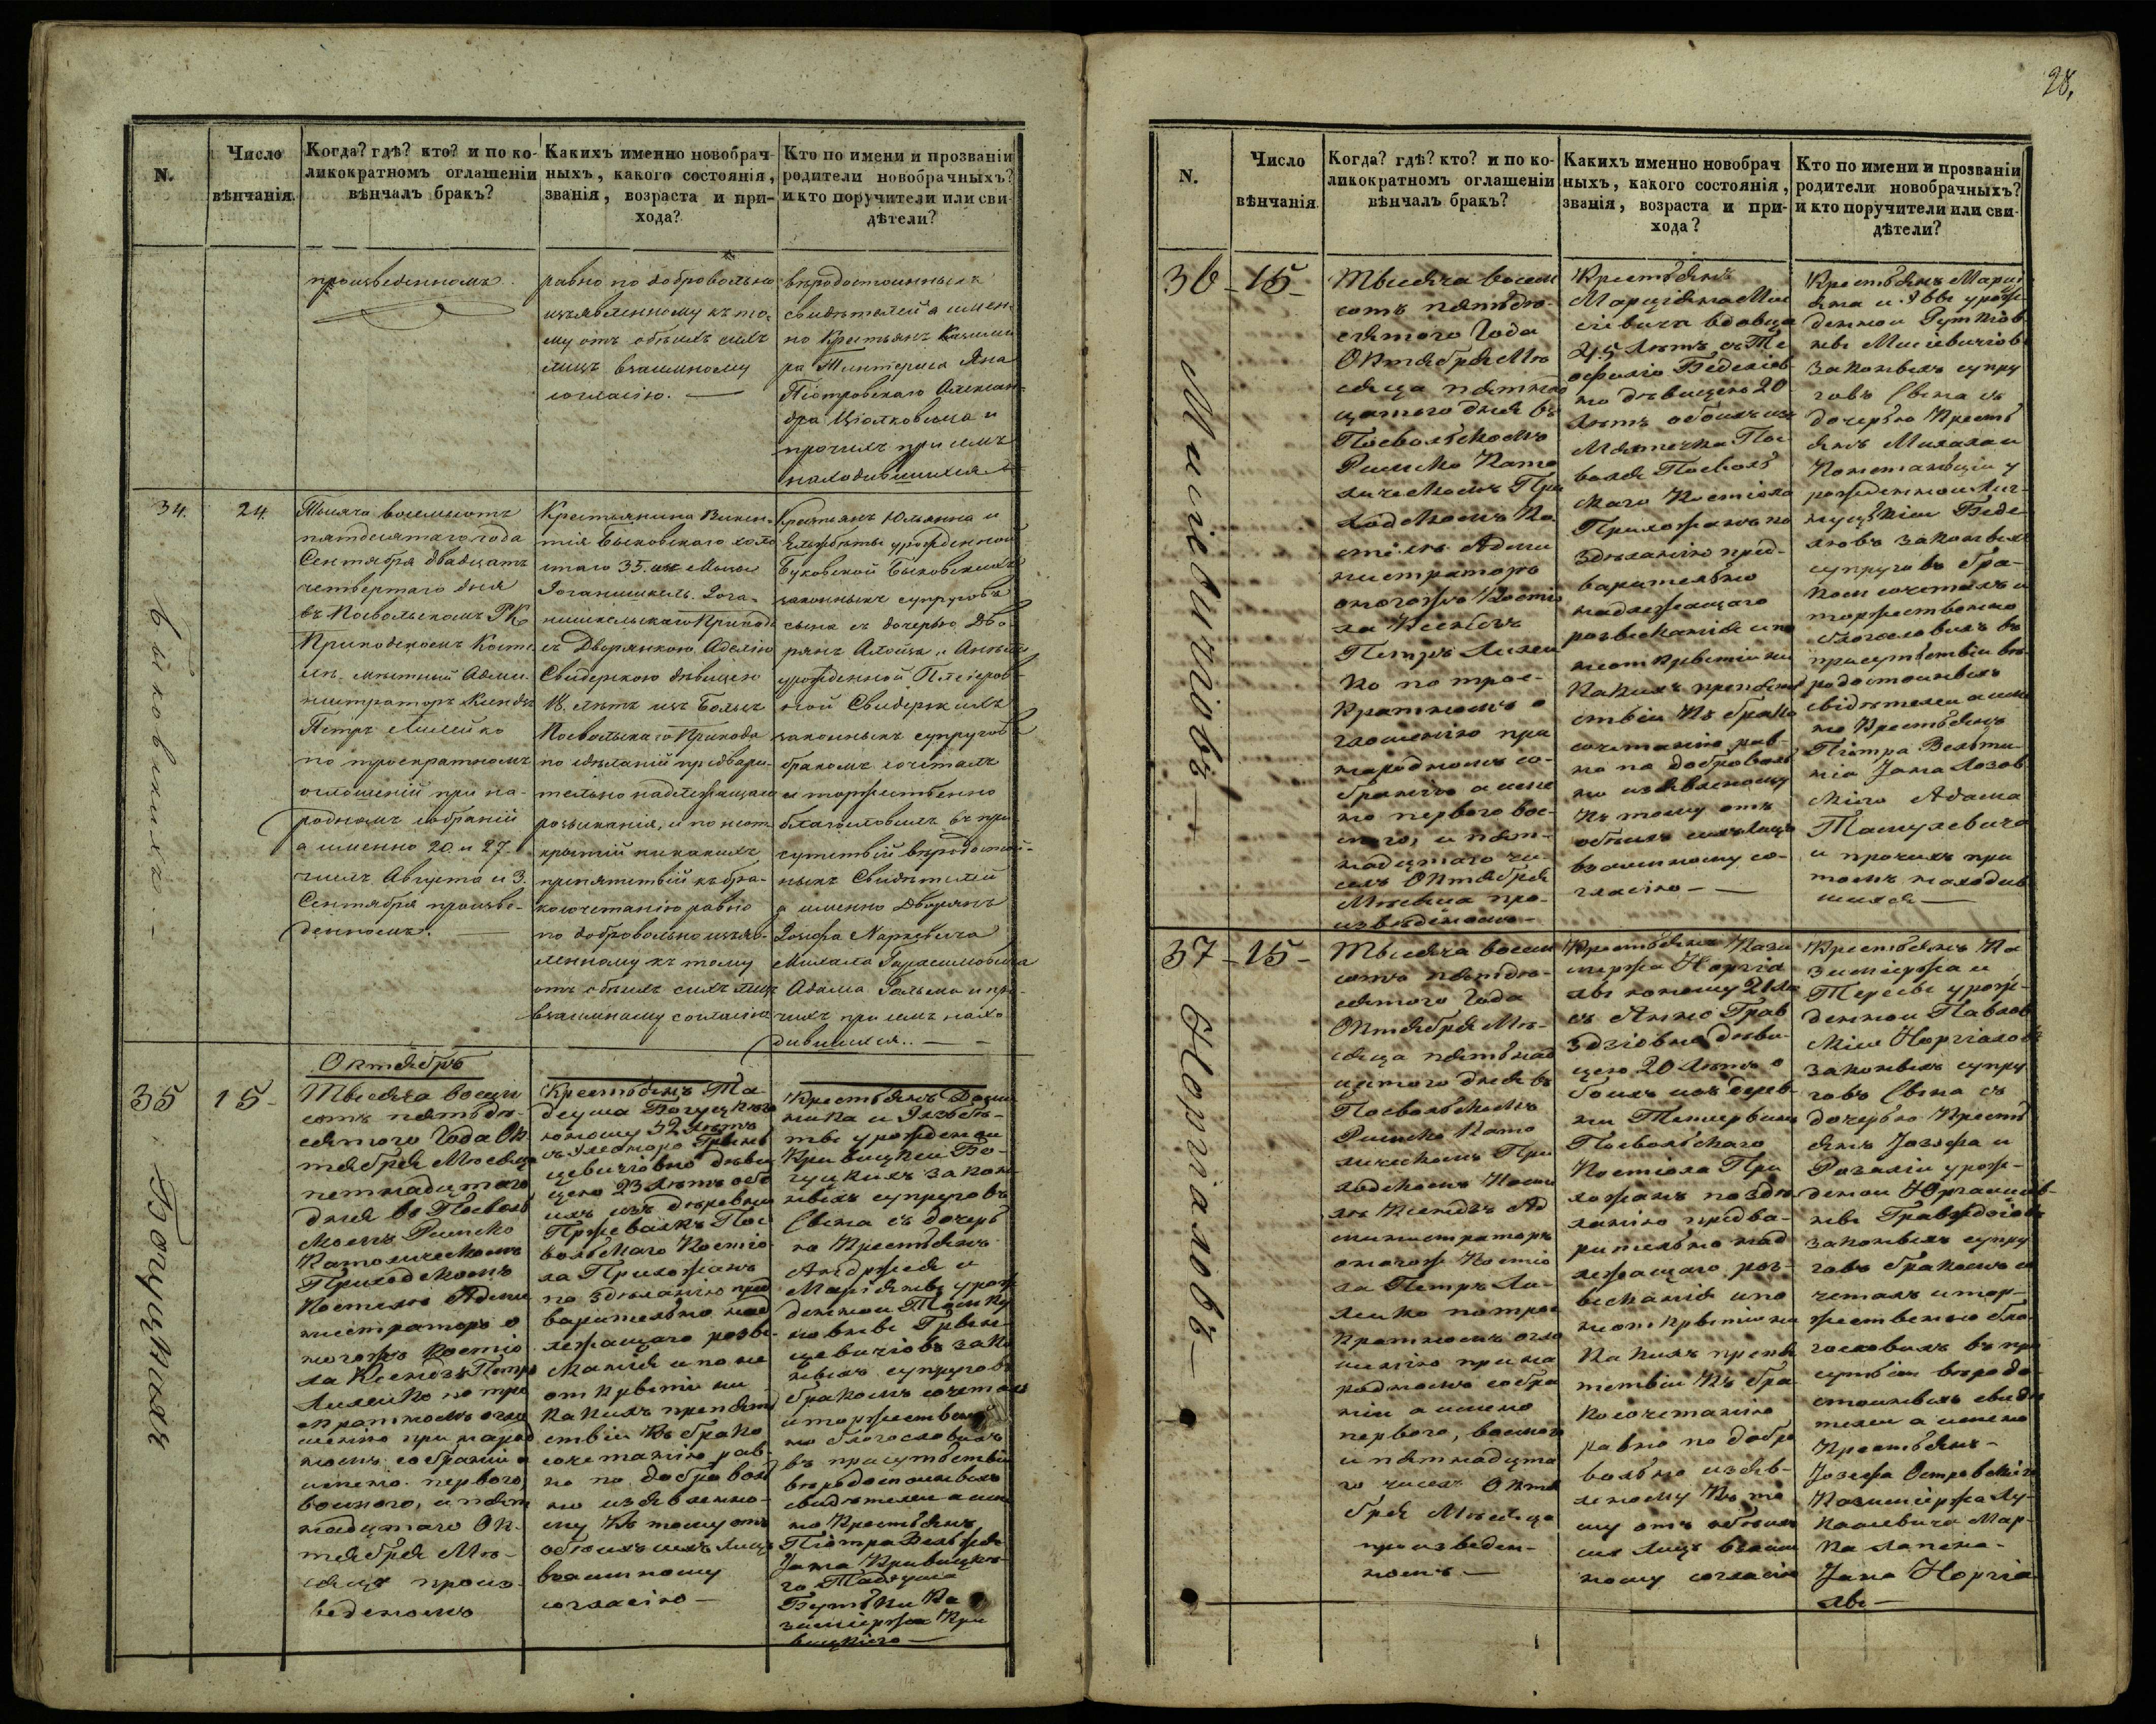 28,
N.
Число
вѣнчанія.
Когда? гдѣ? кто? и по ко-
ликократномъ оглашеніи
вѣнчалъ бракъ?
Какихъ именно новобрач-
ныхъ, какого состоянія,
званія, возраста и при-
хода?
Кто по имени и прозваніи
родители новобрачныхъ?
и кто поручители или сви-
дѣтели?
произведенномъ.
равно по добровольно
изъявленному къ то-
му отъ обѣихъ сихъ
лицъ взаимному
согласію. —
вѣродостоинныхъ
свидѣтелей а имен-
но Крестьянъ Казими
ра Яна
Піотровскаго Алексан-
дра и
прочихъ при семъ
находившихся
34.
24.
Быковскихъ. —
Тысяча восемьсотъ
пятдесятаго года
Сентября двадцать
четвертаго дня
въ Посвольскомъ РК
Приходскомъ Косте
лѣ мѣстный Адми-
нистраторъ Ксендзъ
Петръ Лилейко
по троекратномъ
оглашеній при на-
родномъ собраній
а именно 20. и 27.
числъ Августа и 3.
Сентября произве-
денномъ. —
Крестьянина Викен-
тія Быковскаго холо
стаго 35. изъ
Іоганишкель. Іога-
нишкельскаго Приход
съ Дворянкою Аделію
Свидерскою дѣвицею
18. лѣтъ изъ
Посвольскаго Прихода
по сдѣланій предвари-
тельно надлежащаго
розысканія, и по неот
крытій никакихъ
препятствій къ бра-
косочетанію равно
по добровольно изъяв-
ленному къ тому
отъ обѣихъ сихъ лицъ
взаимному согласію
Крестьянъ Юльяна и
Ельжбеты урожденной
Буковской Быковскихъ
законныхъ супруговъ
сына съ дочерью Дво-
рянъ Алоиза и
урожденной
Свидерскихъ
законныхъ супруговъ
бракомъ сочеталъ
и торжественно
благословилъ въ при-
сутствій вѣродостой-
ныхъ Свидѣтелей
а именно Дворянъ
Іозефа Наркевича
Михала Герасимовича
Адама и про-
чихъ при семъ нахо
дившихся. —
Октябръ
35
15-
Богуцкихъ
Тысяча восем
сотъ пятьде-
сятого Года Ок
тября Мѣсяца
петнадцатаго
дня въ Посволь
скомъ Римско
Католическомъ
Приходскомъ
Костелѣ Адми
нистраторъ о
ногожъ Костіо
ла Ксендзъ Петръ
Лилейко по трое
кратномъ огла
шенію при народ
номъ собраніи а
имено первого,
восмого, и пят
надцтаго Ок-
тября Мѣ-
сяца произ-
веденомъ
Крестьянъ Та-
деуша Богуцкого
юношу 32 лѣтъ
съ Элеонорою Грын
цевичіовно дѣви
цею 23 лѣтъ обо
ихъ изъ деревни
Пос
вольскаго Костіо
ла Прихожанъ
по здѣланію пред
варительно над
лежащаго розы-
сканія и по не
открытіи ни
какихъ препят
ствіи къ брако
сочетанію рав-
но по доброволь
но изъявленно-
му къ тому отъ
обоихъ сихъ лицъ
взаимному
согласію —
Крестьянъ Доми
ника и Элзбѣ-
ты урожденои
Кривицкеи Бо-
гуцкихъ закон
ныхъ супруговъ
Сына съ дочерь
ю Крестьянъ
Андржея и
Маріянны урож
денои
Грын-
цевичіовъ зако
ныхъ супруговъ
бракомъ сочеталъ
и торжествен
но благословилъ
въ присутствіи
вѣродостоиныхъ
свидѣтелеи а име
но Крестьянъ
Піотра
Яна Кривицко-
го Тадеуша
Бутвки Ка
зимиржа Кри
вицкіего —
N.
Число
вѣнчанія.
Когда? гдѣ? кто? и по ко-
ликократномъ оглашеніи
вѣнчалъ бракъ?
Какихъ именно новобрач
ныхъ, какого состоянія,
званія, возраста и при-
хода?
Кто по имени и прозваніи
родители новобрачныхъ?
и кто поручители или сви-
дѣтели?
36-
15-
Мисіевичіовъ —
Тысяча восем
сотъ пятьде-
сятого Года
Октября Мѣ
сяца пятнад
цатого дня въ
Посвольскомъ
Римско Като
лическомъ При
ходскомъ Ко-
стіолѣ Адми
нистраторъ
оногожъ Костіо
ла Ксендзъ
Петръ Лилеи
ко по трое-
кратномъ о
глошенію при
народномъ со-
бранію а име
но первого вос-
мого, и пят-
надцтаго чи-
селъ Октября
Мѣсяца про-
изведеномъ —
Крестьянъ
Марціяна Мис
сіевича вдовца
45 лѣтъ съ Те
офилію Беделіов
но дѣвицею 20
лѣтъ обоихъ изъ
Мѣстечка Пос
воля Посволь
скаго Костіола
Прихожанъ по
здѣланію пред-
варительно
надлежащаго
розысканія и по
неоткрытіи ни
какихъ препят
ствіи къ брако
сочетанію рав-
но по доброволь
но изъявленому
къ тому отъ
обоихъ сихъ лицъ
взаимному со-
гласію —
Крестьянъ Марці
яна и Эвы урож
денои Рутків
ны Мисіевичіовъ
законыхъ супру
говъ Сына съ
дочерью Кресть
янъ Михала и
Константціи у
рожденои
Беде
лювъ законыхъ
супруговъ бра-
комъ сочеталъ и
торжественно
благословилъ въ
присутствіи вѣ-
родостоиныхъ
свідѣтелеи а име
но Крестьянъ
Піотра
Яна Лозов
скіго Адама
Томулевича
и прочихъ при
томъ находив
шихся —
37-
15-
Норгіаловъ —
Тысяча восем
сотъ пятдѣ-
сятого Года
Октября Мѣ-
сяца пятьнад
цатого дня въ
Посвольскомъ
Римско Като
лическомъ При
ходскомъ Кости
лѣ Ксендзъ Ад
министраторъ
оногожъ Костіо
ла Петръ Ли-
леико по трое
кратномъ огло
шенію при на
родномъ собра
ніи а имено
первого, восмого
и пятнадцта
го числъ Октя
бря Мѣсяца
произведен-
номъ —
Крестьянъ Кази
миржа Норгіа
лы юношу 21 лѣ
съ Анною Грав
здзіовно дѣви-
цею 20 лѣтъ о
боихъ изъ дерев-
ни
Посвольскаго
Костіола При
хожанъ по здѣ
ланію предва-
рительно над
лежащаго роз-
ысканія и по
неоткрытію ни
какихъ препя
тствіи къ бра
косочетанію
равно по добро
вольно изъяв-
леному къ то
му отъ обоихъ
сихъ лицъ взаим
ному согласію
Крестьянъ Ка
зимиржа и
Терессы урож-
денои Павлов
скіи Норгіаловъ
законыхъ супру
говъ Сына съ
дочерью Кресть
янъ Іозефа и
Розаліи урож-
денои
ны
законыхъ супру
говъ бракомъ со
четалъ и тор-
жественно бла-
гословилъ въ при
сутвіи вѣродо-
стоиныхъ свидѣ
телеи а имено
Крестьянъ-
Іозефа Островскіго
Казимиржа Лу-
кашевича Мар-
ка Лапена-
Яна Норгіа
лы —